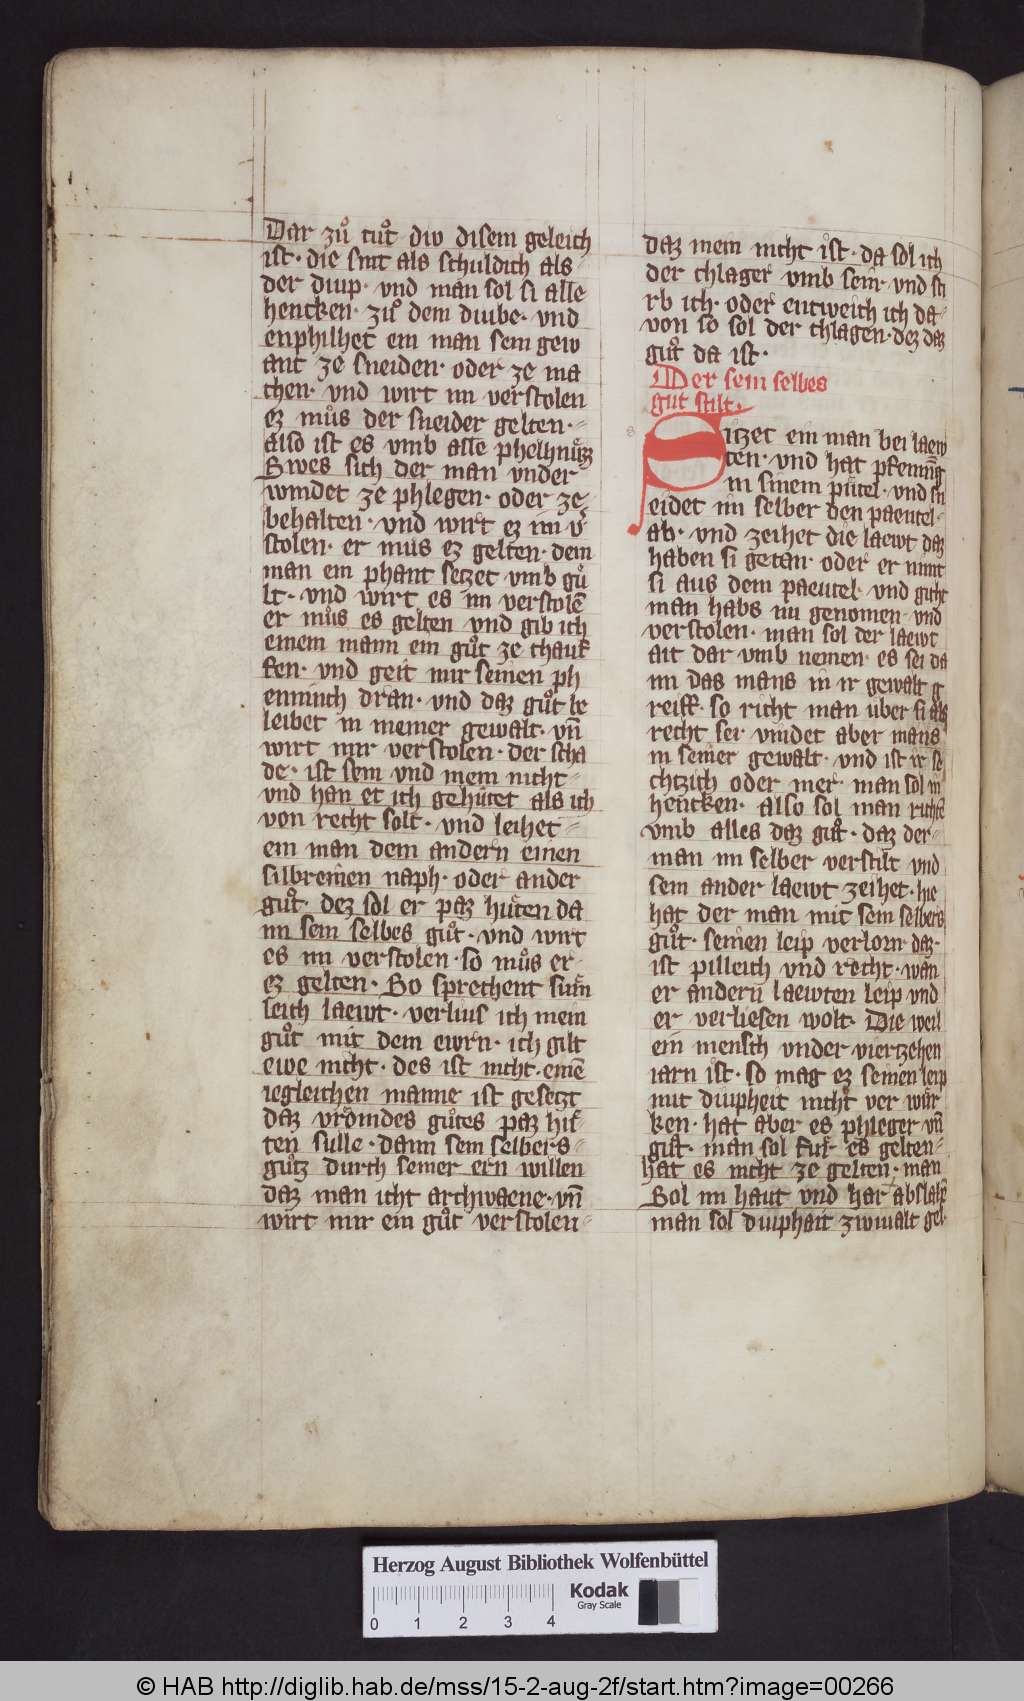 Dar zuͦ tuͦt div disem geleich
ist · die sint als schuldich als⸗
der diup · vnd man sol si alle
hencken · zuͦ dem diube · vnd
enphilhet ein man sein gew
ant ze sneiden · oder ze ma
chen · vnd wirt im verstolen
ez muͦs der sneider gelten ·⸗
also ist es vmb alle phelhnuͦzz
Swes sich der man vnder
windet ze phlegen · oder ze⸗
behalten · vnd wirt ez im v̾
stolen · er mus ez gelten · dem
man ein phant setzet vmb guͦ
lt · vnd wirt es im verstolē
er muͦs es gelten vnd gib ich
einem mann ein guͦt ze chauf
fen · vnd geit mir seinen ph
enninch dran · vnd daz guͦt be
leibet in meiner gewalt · vn̄
wirt mir verstolen · der scha
de · ist sein vnd mein nicht⸗
vnd han et ich gehütet als ich
von recht solt · vnd leihet⸗
ein man dem andern einen
silbreinen naph · oder ander
guͦt · dez sol er paz huͤten da
im sein selbes guͦt · vnd wirt
es im verstolen · so muͦs er·
ez gelten · So sprechent süm
leich laewt · verlius ich mein
guͦt mit dem ewrn · ich gilt
ewe nicht · des ist nicht · einē
iegleichen manne ist gesetzt
daz vrömdes guͦtes paz huͤ⸗
ten sulle · dann sein selbers⸗
guͦtz durch seiner ern willen
daz man icht archwaene · vn̄
wirt mir ein guͦt verstolen⸗
daz mein nicht ist · da sol ich
der chlager vmb sein · vnd sti
rb ich · oder entweich ich da⸗
von so sol der chlagen · dez daz
guͦt da ist ·
Der sein selbes
gut stilt ·
Sitzet ein man bei laew
ten · vnd hat pfenning
in sinem püitel · vnd sn
eidet im selber den paeutel ·
ab · vnd zeihet die laewt daz
haben si getan · oder er nimt
si aus dem paeutel · vnd giht
man habs im genomen · vnd
verstolen · man sol der laewt
ait dar vmb nemen · es sei da
nn das mans in ir gewalt g
reiff · so richt man über si als
recht sei vindet aber mans
in seiner gewalt · vnd ist ir se
chtzich oder mer · man sol in
hencken · also sol man richtē
vmb alles daz guͦt · daz der⸗
man im selber verstilt vnd
sein ander laewt zeihet · hie
hat der man mit sein selbers
guͦt · seinen leip verlorn · daz·
ist pilleich vnd recht · wan
er andern laewten leip vnd
er verliesen wolt · Die weil
ein mensch vnder viertzehen
iarn ist · so mag ez seinen leip
mit diupheit nicht ver wür
ken · hat aber es phleger vn̄
guͦt · man sol fuͤr es gelten⸗
hat es nicht ze gelten · man
Sol im haut vnd har abslahē
man sol diuphait zwiualt gel·
Herzog August Bibliothek Wolfenbüttel
Kodak
Gray Scale
0 1 2 3 4
© HAB http://diglib.hab.de/mss/15-2-aug-2f/start.htm?image=00266